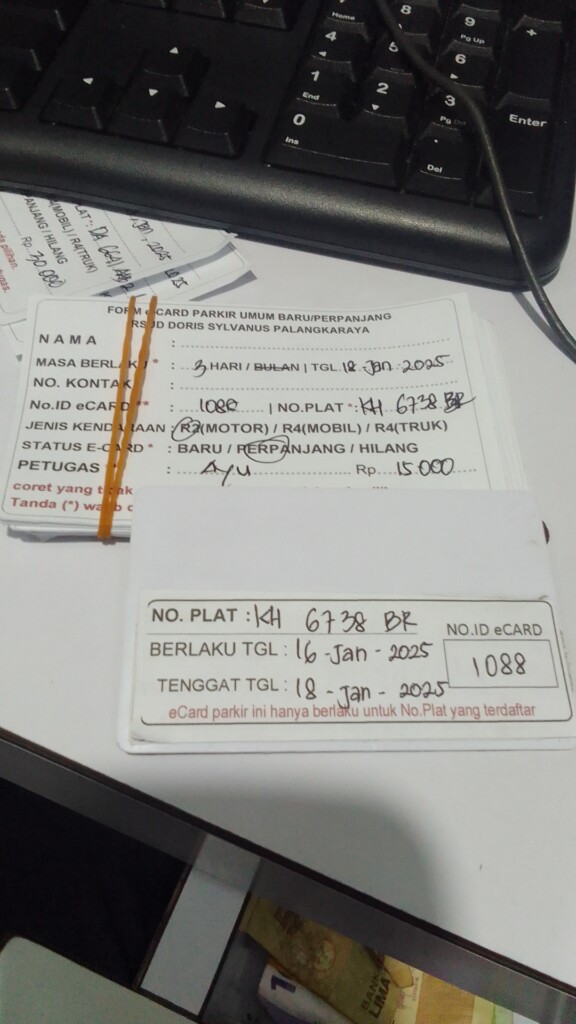 Home
8
9
Pg Up
+
4
5
6
1
End
2
3
Enter
0
Ins
Del
PLAT : DA 6641
R4(MOBIL) / R4(TRUK)
PANJANG / HILANG
Rp. 30.000
FORM eCARD PARKIR UMUM BARU/PERPANJANG
RSUD DORIS SYLVANUS PALANGKARAYA
NAMA :
MASA BERLAKU * : 3 HARI / BULAN | TGL. 18 Jan 2025
NO. KONTAK :
No.ID eCARD ** : 1088 | NO.PLAT * : KH 6738 BR
JENIS KENDARAAN : R2(MOTOR) / R4(MOBIL) / R4(TRUK)
STATUS E-CARD * : BARU / PERPANJANG / HILANG
PETUGAS : Ayu Rp. 15.000
coret yang
Tanda (*)
NO. PLAT : KH 6738 BR
NO.ID eCARD
BERLAKU TGL : 16 - Jan - 2025
1088
TENGGAT TGL : 18 - Jan - 2025
eCard parkir ini hanya berlaku untuk No.Plat yang terdaftar
BANK
LIMA